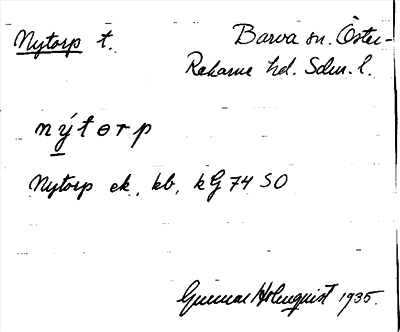 Nytorp t. Barva sn. Öster-
Rekarne hd. Sdm. l.
nýtorp
Nytorp ek, kb, kG 74 SO
Gunnar Holmquist 1935.